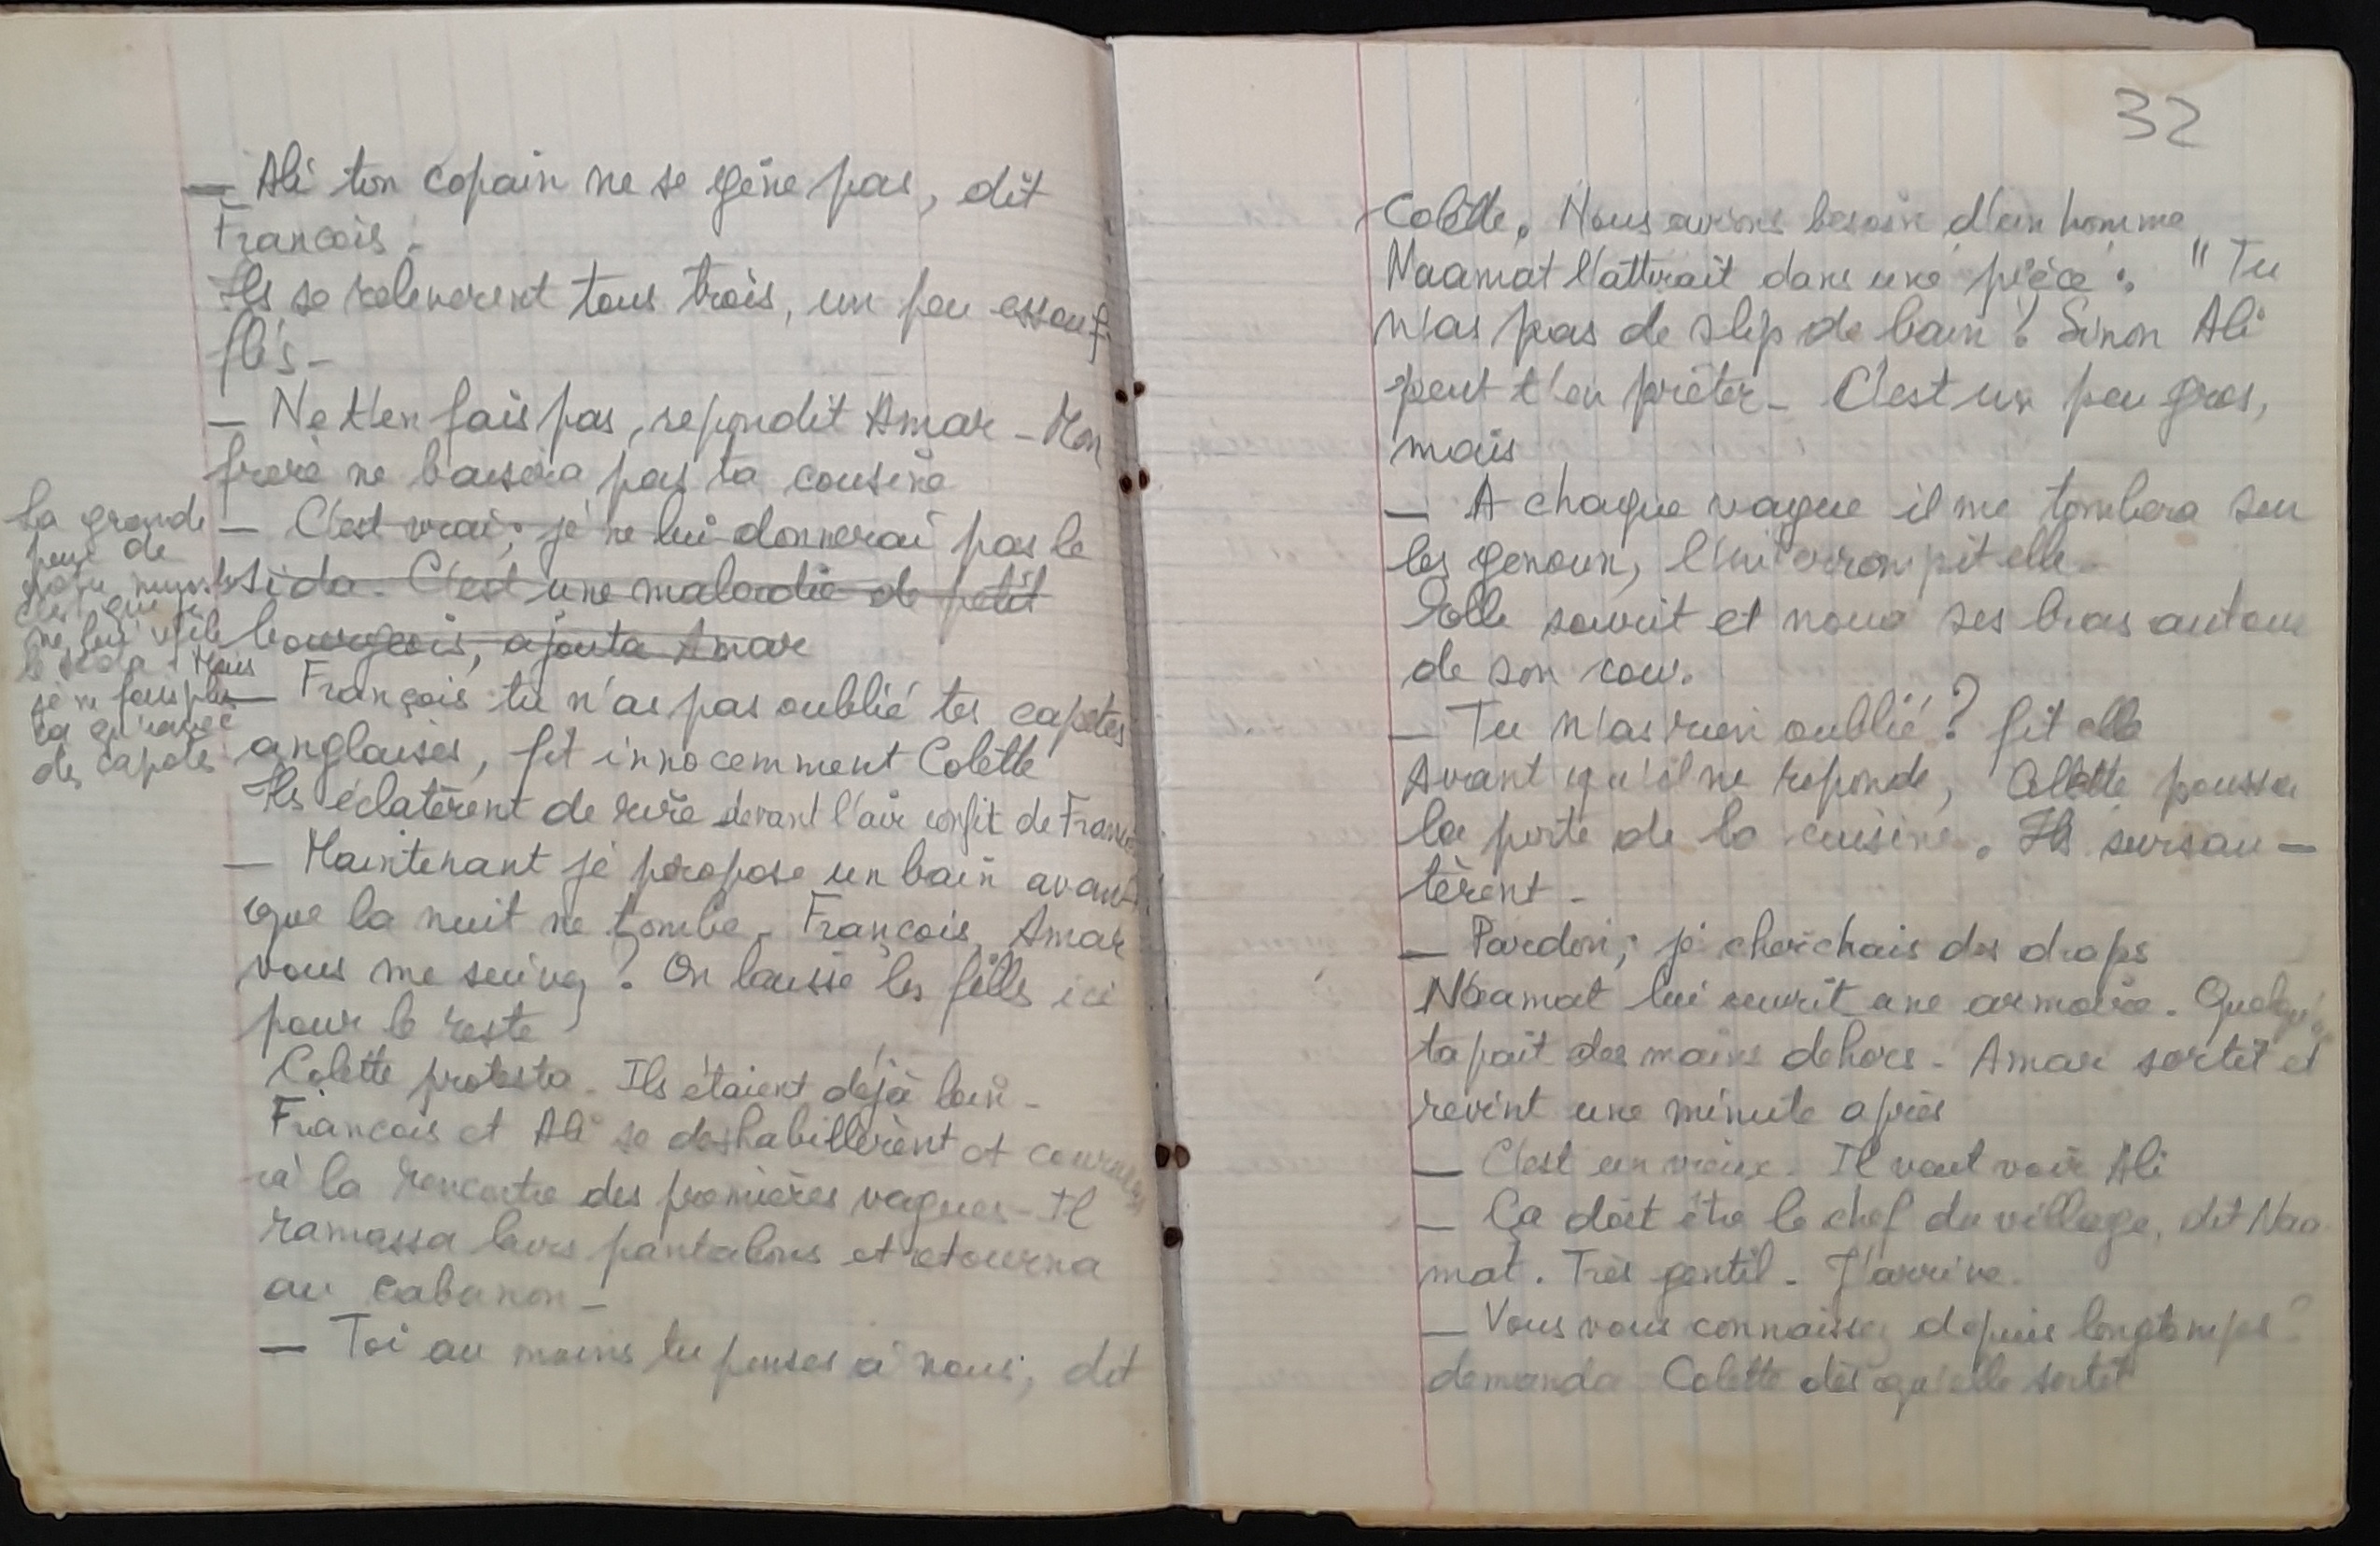 — Ali ton copain ne se gêne pas, dit
François.
Ils se releverent tous trois, un peu essouf
flés -
— Ne t'en fais pas, repondit Amar - Mon
frere ne baisera pas ta cousine
— C'est vrai; je ne lui donnerai pas le
sida. C'est une maladie de petit
bourgeois, ajouta Amar
La grande
peur de
c'est que je
ne lui refile
le sida. Mais
je ne fais plus
ça qu'avec
des capotes
— François tu n'as pas oublié tes capotes
anglaises, fit innocemment Colette
Ils éclatèrent de rire devant l'air confit de
— Maintenant je propose un bain avant
que la nuit ne tombe. François, Amar
vous me suivez? On laisse les filles ici
pour le reste
Colette protesta. Ils étaient déjà loin -
Francois et Ali se deshabillèrent et
à la rencontre des premières vagues - Il
ramassa leurs pantalons et retourna
au cabanon -
— Toi au moins tu penses à nous, dit
32
Colette. Nous avions besoin d'un homme
Naamat l'attirait dans une pièce: " Tu
n'as pas de slip de bain? Sinon Ali
peut t'en prêter - C'est un peu gros,
mais
— A chaque vague il me tombera sur
les genoux, l'interrompit elle.
Elle sourit et noua ses bras autour
de son cou.
— Tu n'as rien oublié? fit elle
Avant qu'il ne reponde, Colette poussa
la porte de la cuisine. Ils sursau —
tèrent -
— Pardon; je cherchais des draps
Naamat lui ouvrit une armoire.
tapait des mains dehors - Amar sortit et
revint une minute après
— C'est un vieux. Il veut voir Ali
— Ça doit être le chef du village, dit Naa
mat. Très gentil - J'arrive.
— Vous vous connaissez depuis longtemps?
demanda Colette dès qu'elle sortit